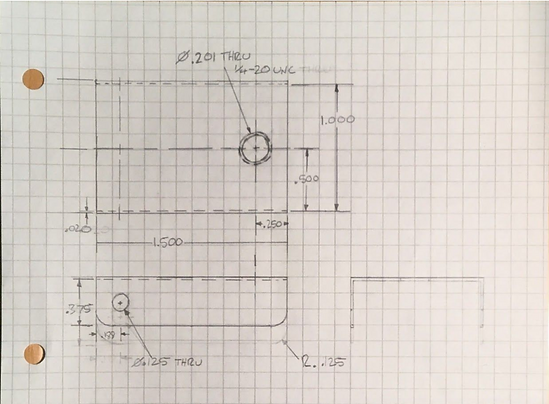 Ø.201 THRU
1/4-20 UNC
1.000
.500
.020
.250
1.500
.375
Ø.125 THRU
R. .125